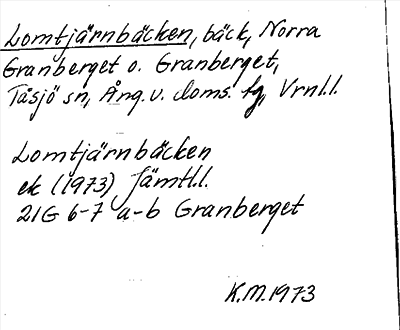 Lomtjärnbäcken, bäck, Norra
Granberget o. Granberget,
Tåsjö sn, Ång. v. doms. tg, Vrnl.l.
Lomtjärnbäcken
ek (1973) Jämtl.l.
21G 6-7 a-b Granberget
K.M. 1973